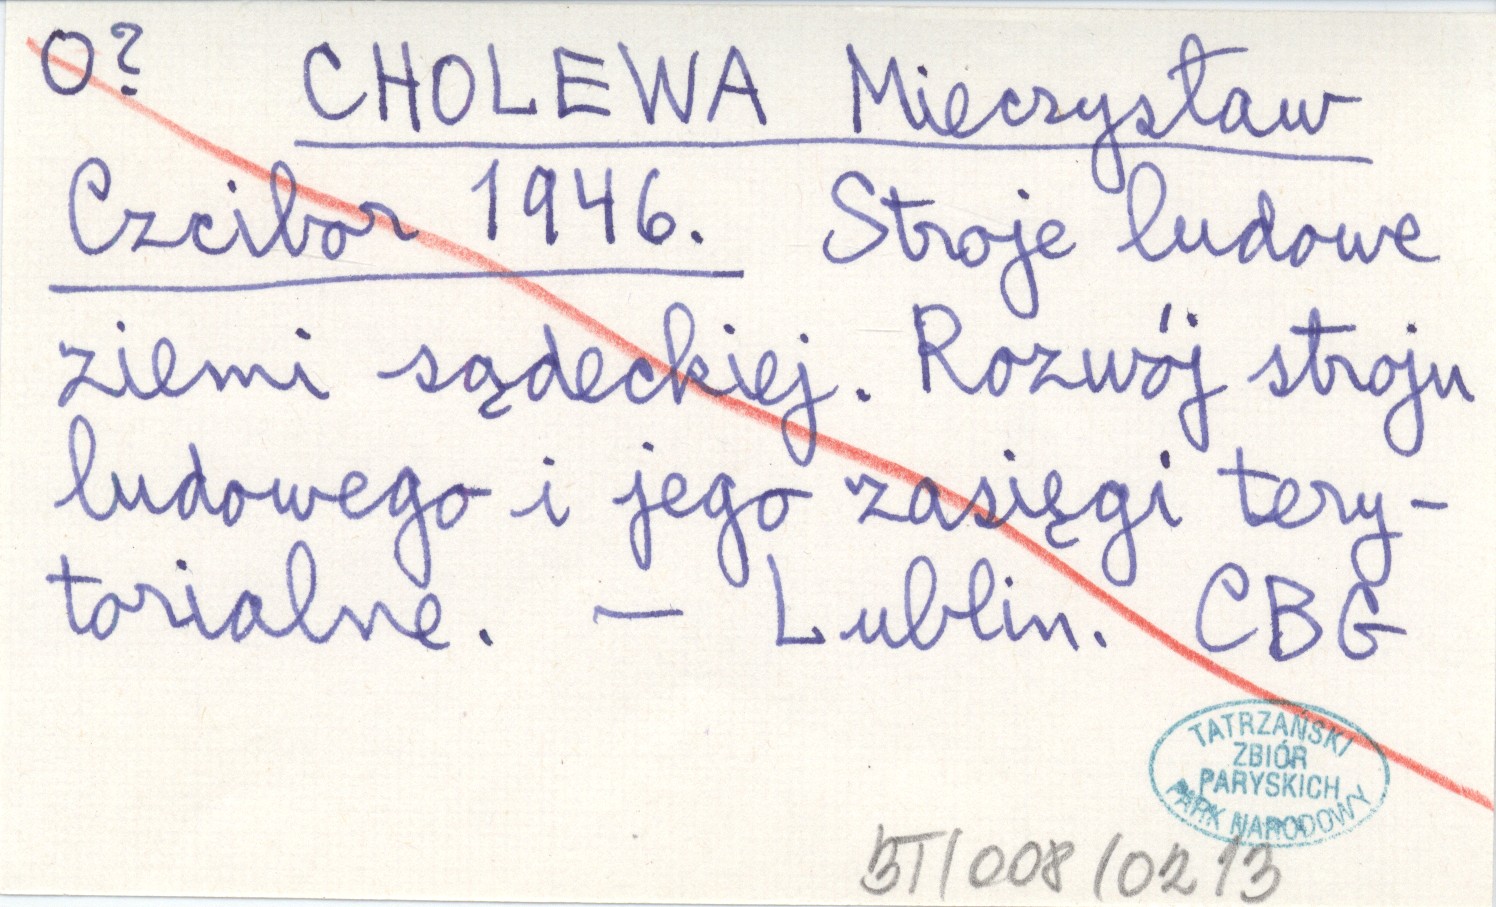 O? CHOLEWA Mieczysław
Czcibor 1946. Stroje ludowe
ziemi sądeckiej. Rozwój stroju
ludowego i jego zasięgi tery-
torialne. — Lublin. CBG
TATRZAŃSKI
ZBIÓR
PARYSKICH
PARK NARODOWY
BT/008/0213